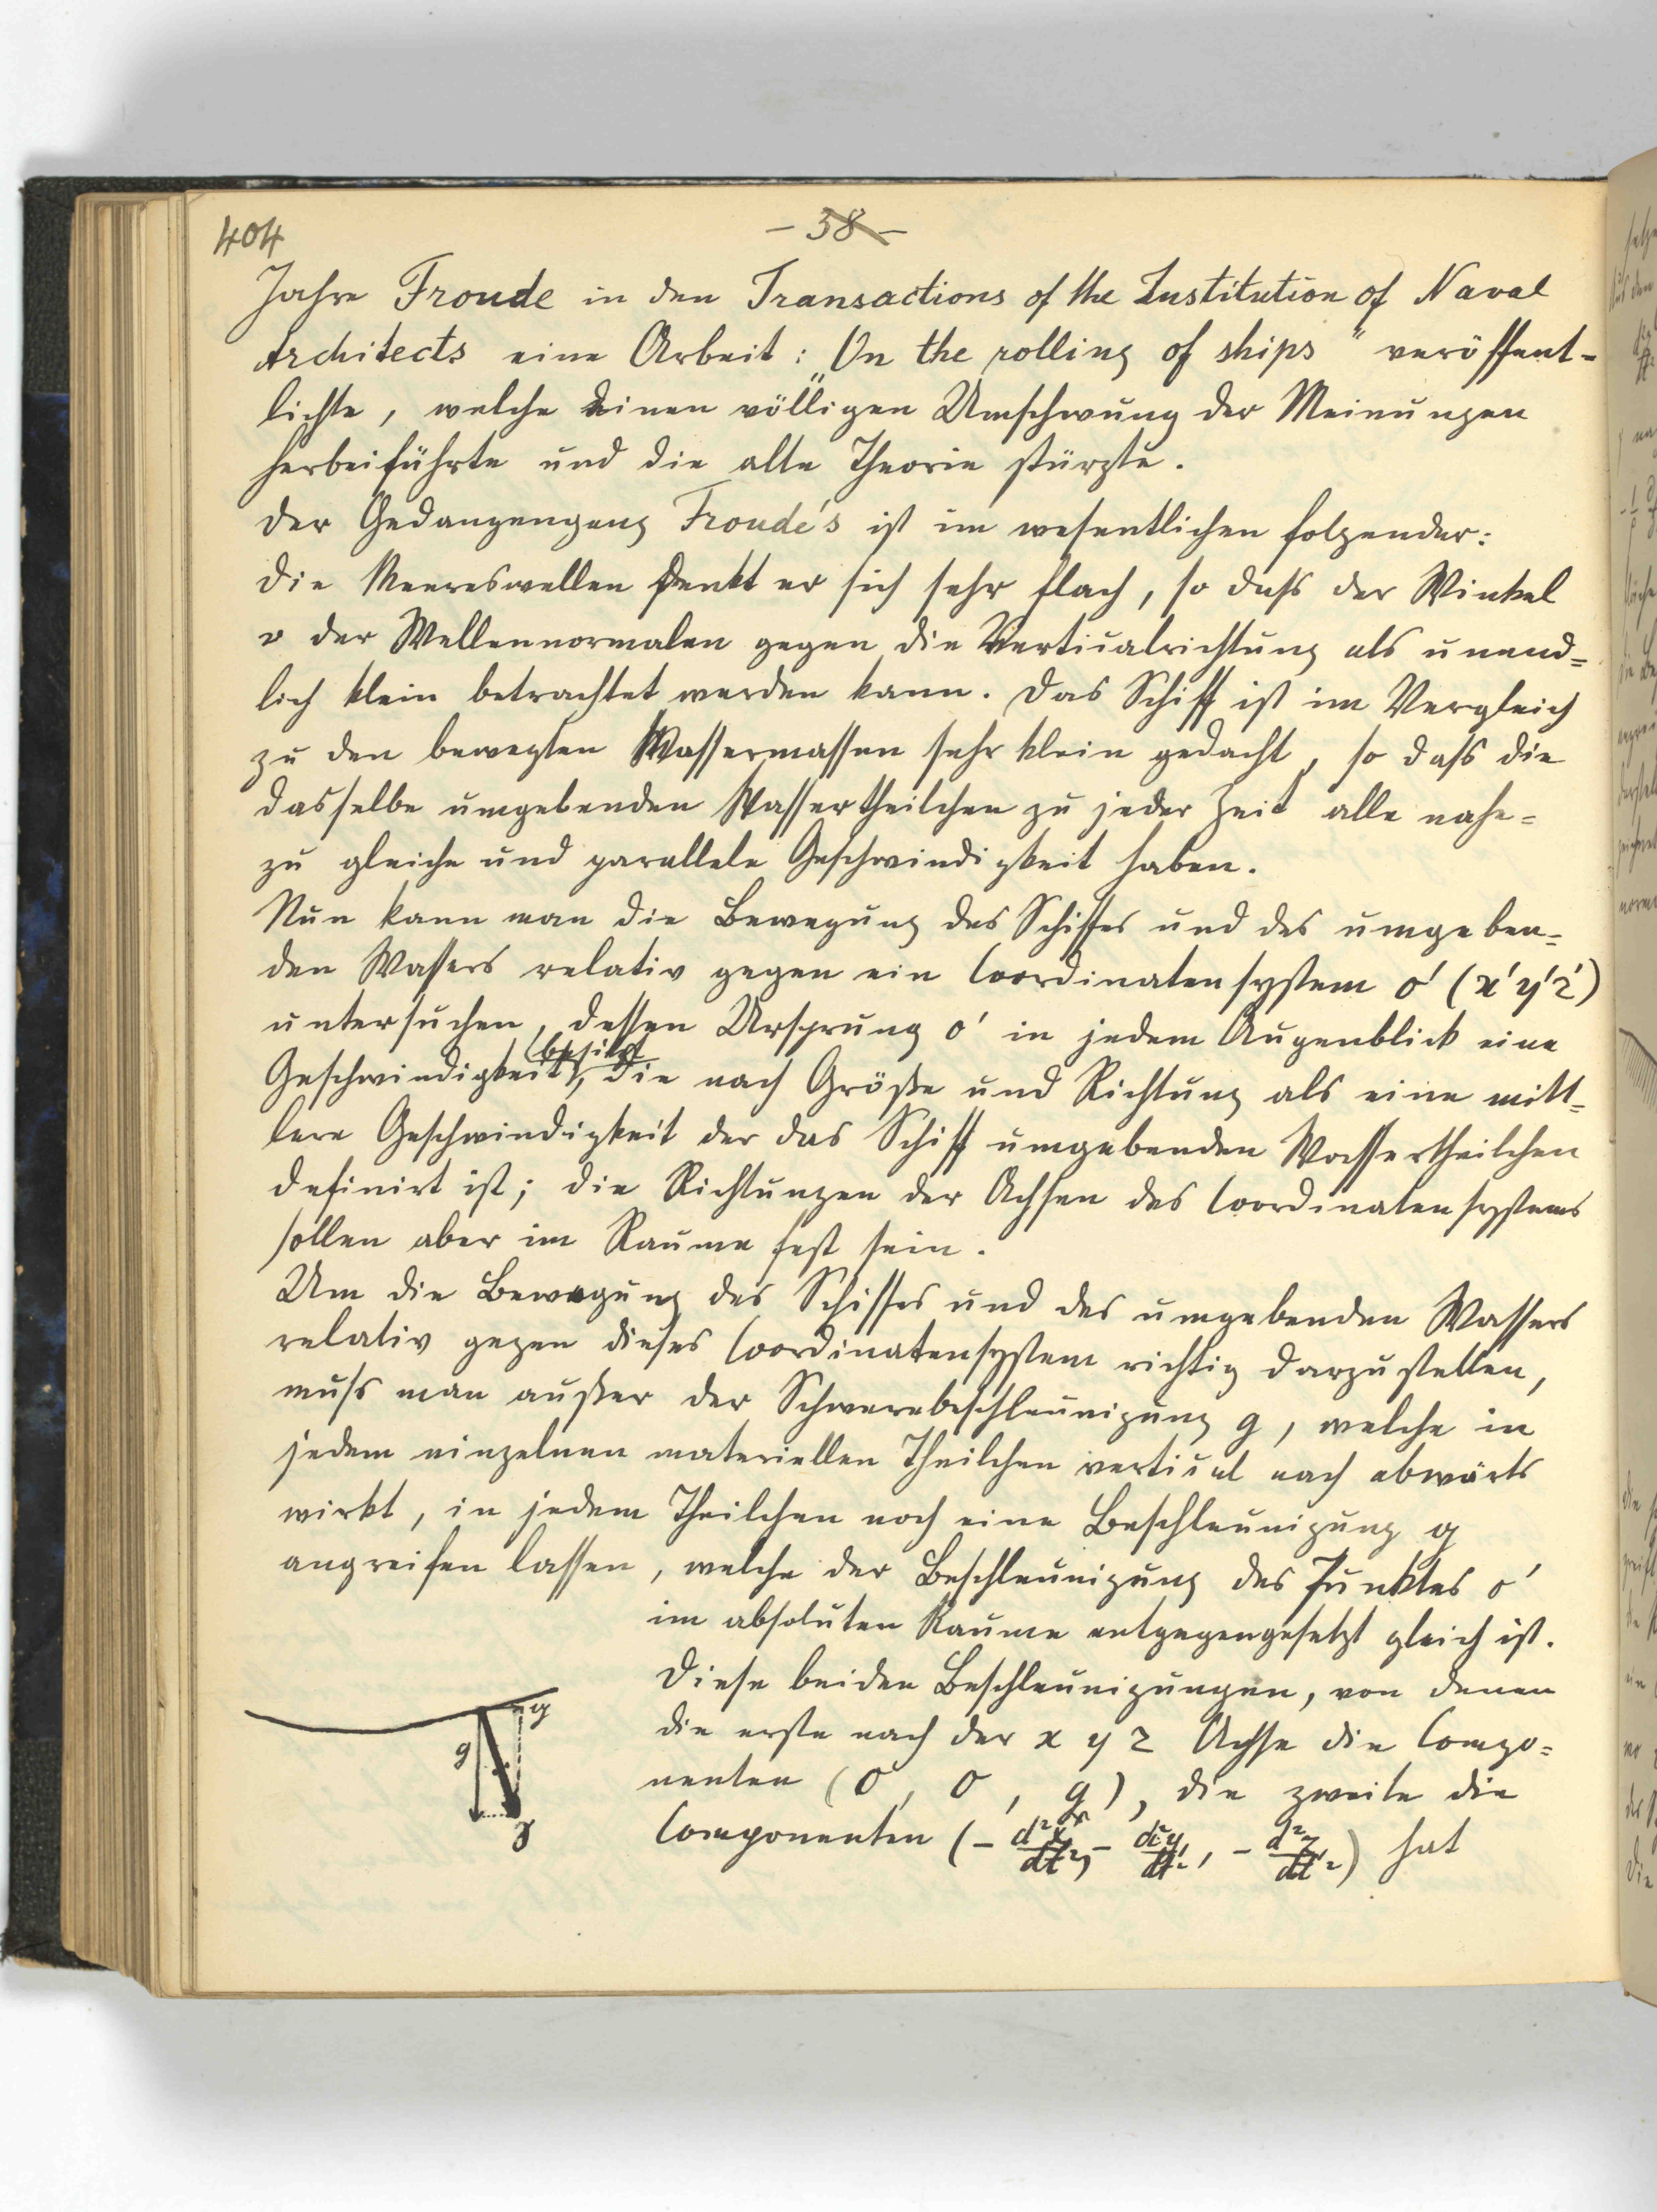 404
- 38 -
Jahre Froude in den Transactions of the Institution of Naval
Architects eine Arbeit: „On the rolling of ships“ veröffent-
lichte, welche einen völligen Umschwung der Meinungen
herbeiführte und die alte Theorie stürzte.
Der Gedangengang Froude's ist im wesentlichen folgender:
Die Meereswellen denkt er sich sehr flach, so dass der Winkel
v der Wellennormalen gegen die Verticalrichtung als unend=
lich klein betrachtet werden kann. Das Schiff ist im Vergleich
zu den bewegten Wassermassen sehr klein gedacht, so dass die
dasselbe umgebenden Wassertheilchen zu jeder Zeit alle nahe=
zu gleiche und parallele Geschwindigkeit haben.
Nun kann man die Bewegung des Schiffes und des umgeben=
den Wassers relativ gegen ein Coordinatensystem o' (x'y'z')
untersuchen, dessen Ursprung o' in jedem Augenblick eine
Geschwindigkeit besitzt, die nach Größe und Richtung als eine mitt=
lere Geschwindigkeit der das Schiff umgebenden Wassertheilchen
definirt ist; die Richtungen der Achsen des Coordinatensystems
sollen aber im Raume fest sein.
Um die Bewegung des Schiffes und des umgebenden Wassers
relativ gegen dieses Coordinatensystem richtig darzustellen,
muss man außer der Schwerebeschleunigung g, welche in
jedem einzelnen materiellen Theilchen vertical nach abwärts
wirkt, in jedem Theilchen noch eine Beschleunigung q
angreifen lassen, welche der Beschleunigung des Punktes o'
im absoluten Raume entgegengesetzt gleich ist.
Diese beiden Beschleunigungen, von denen
die erste nach der x y z Achse die Compo=
nenten (0, 0, g), die zweite die
Componenten (- d²x/dt², - d²y/dt², - d²z/dt²) hat
q
g
γ